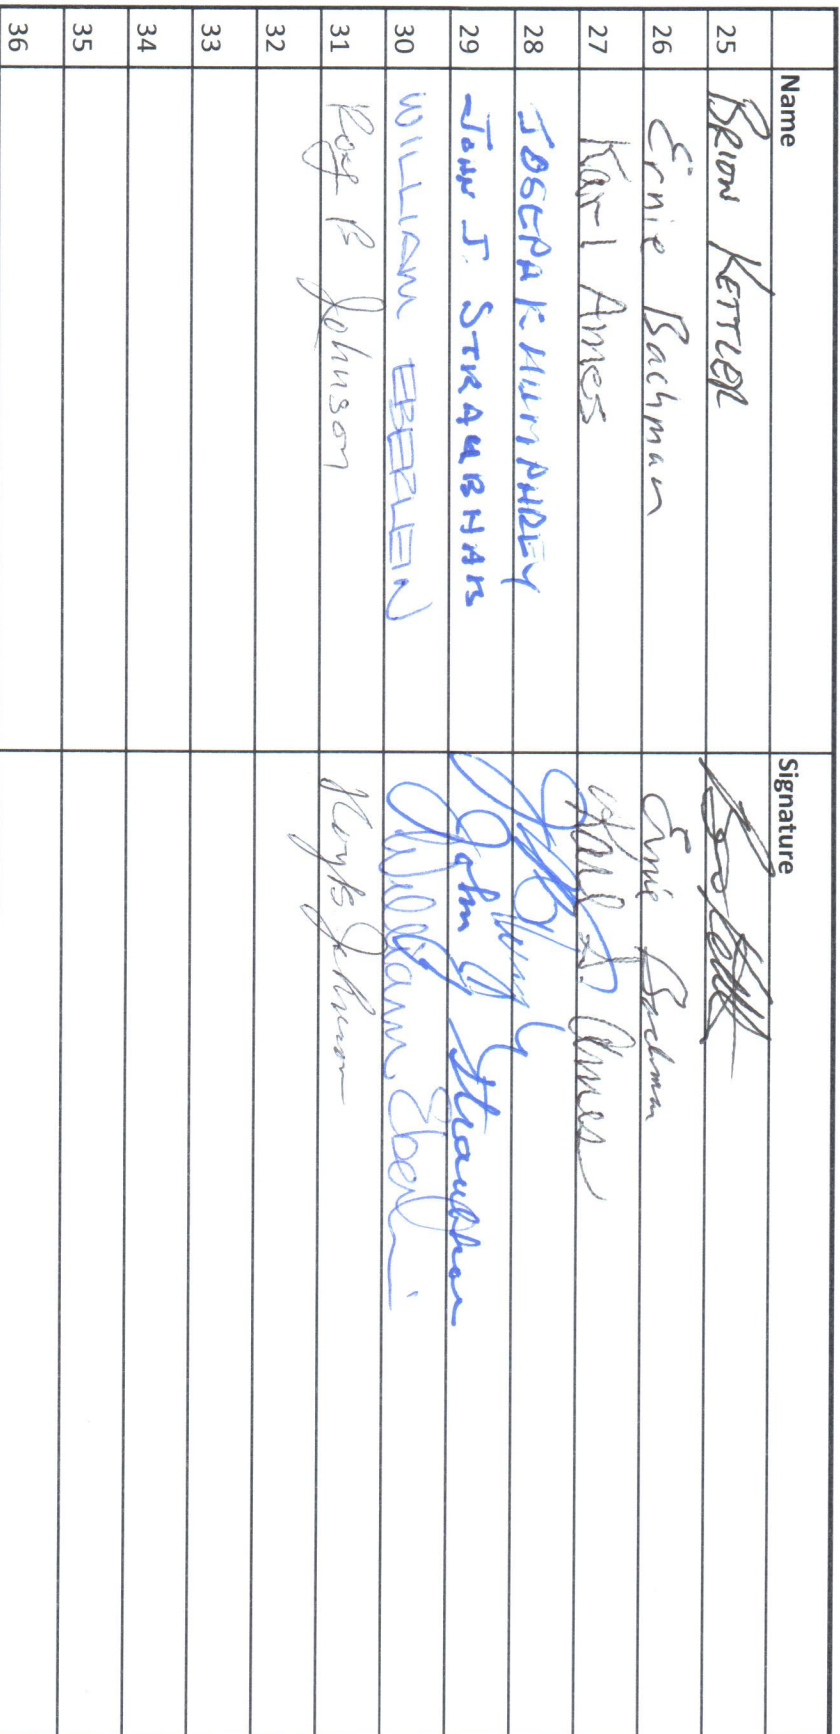 Name Signature
25 BRION KETTLER
26 Ernie Bachman Ernie Bachman
27 Karl Ames Karl A. Ames
28 JOSEPH K HUMPHREY
29 JOHN J. STRAUBHAR John J Straubhar
30 WILLIAM EBERLEIN William Eberlein
31 Roy B Johnson Roy B Johnson
32
33
34
35
36